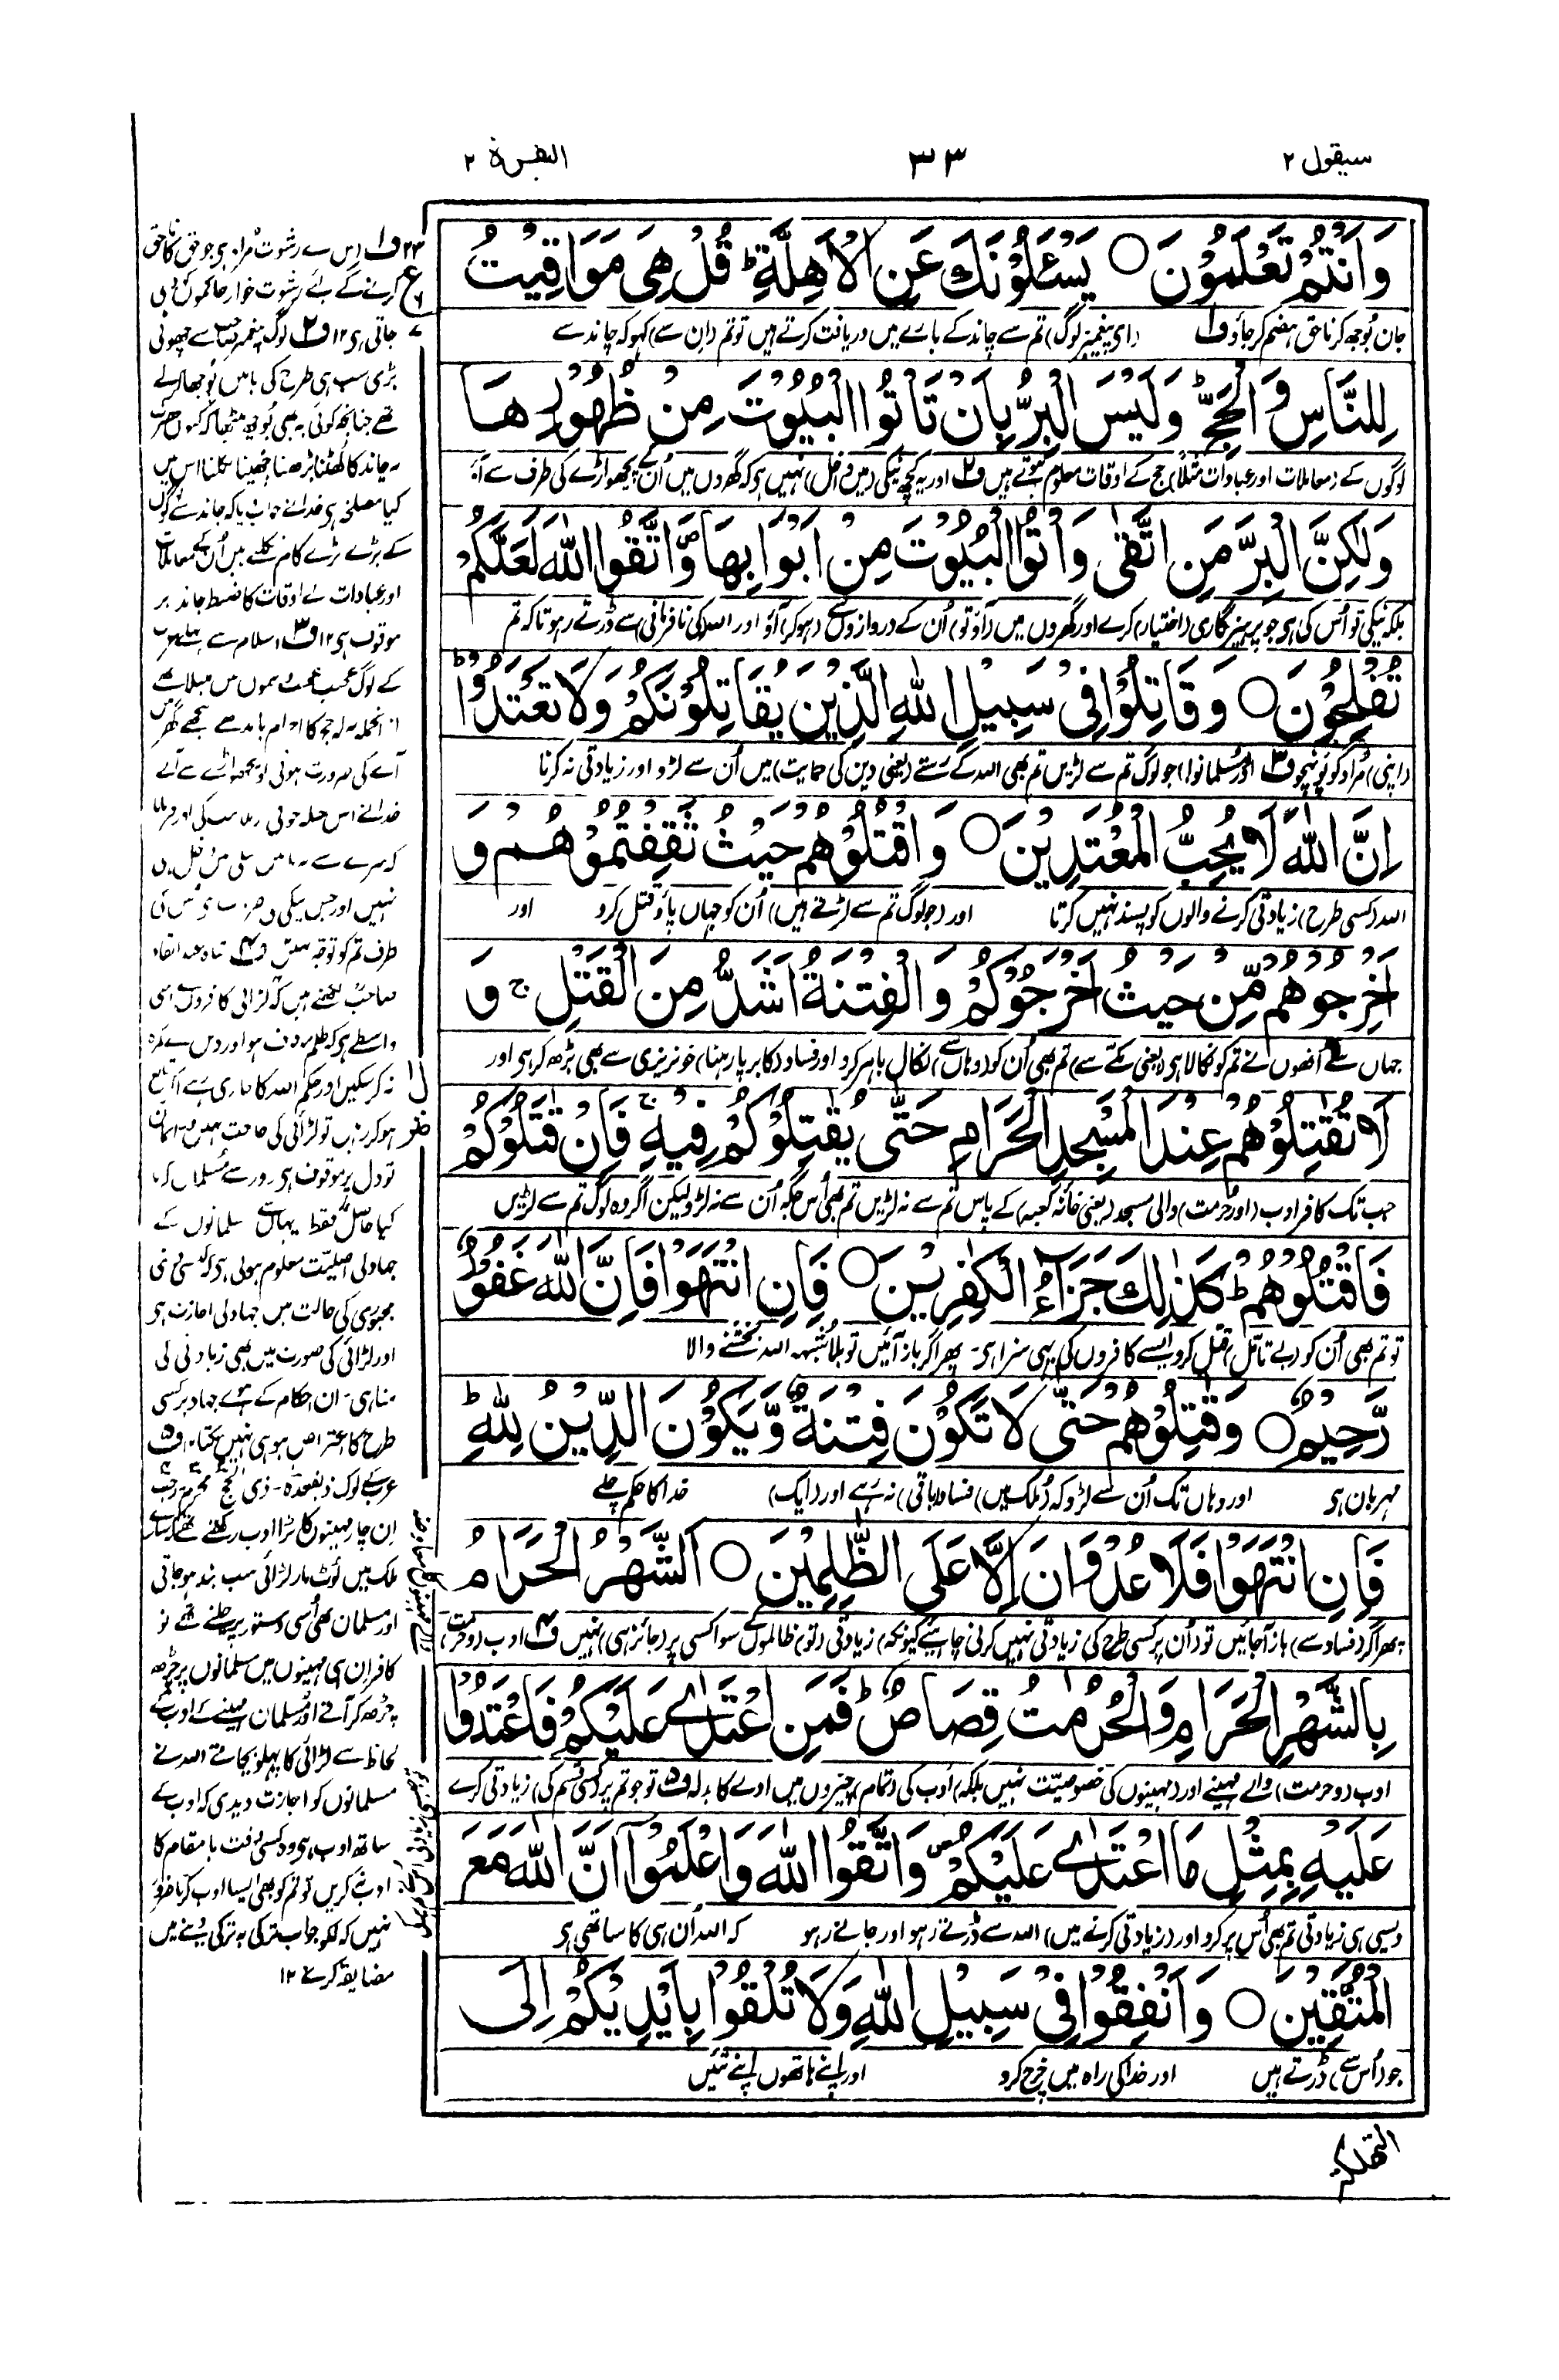 سيقول ٢
٣٣
البقرة ٢
وَاَنْتُمْ تَعْلَمُوْنَ ○ يَسْـَٔلُوْنَكَ عَنِ الْاَهِلَّةِ ؕ قُلْ هِىَ مَوَاقِيْتُ
جان بوجھ کر ناحق ہضم کر جاؤ ف۱ (ای پیغمبر لوگ) تم سے چاند کے بارے میں دریافت کرتے ہیں تو تم (ان سے) کہو کہ چاند سے
لِلنَّاسِ وَ الْحَجِّ ؕ وَلَيْسَ الْبِرُّ بِاَنْ تَاْتُوا الْبُيُوْتَ مِنْ ظُهُوْرِهَا
لوگوں کے (معاملات اور عبادات مثلاً) حج کے اوقات معلوم ہوتے ہیں ف۲ اور یہ کچھ نیکی (میں داخل) نہیں ہی کہ گھروں میں اُن کے پچھواڑے کی طرف سے آؤ
وَلٰكِنَّ الْبِرَّ مَنِ اتَّقٰى ۚ وَاْتُوا الْبُيُوْتَ مِنْ اَبْوَابِهَا ۪ وَاتَّقُوا اللّٰهَ لَعَلَّكُمْ
بلکہ نیکی تو اُس کی ہی جو پرہیزگاری (اختیار) کرے اور گھروں میں (آؤ تو) اُن کے دروازوں سے (ہوکر) آؤ اور اللہ (کی نافرمانی) سے ڈرتے رہو تاکہ تم
تُفْلِحُوْنَ ○ وَقَاتِلُوْا فِىْ سَبِيْلِ اللّٰهِ الَّذِيْنَ يُقَاتِلُوْنَكُمْ وَلَا تَعْتَدُوْا ؕ
(اپنی) مُراد کو پونہچو ف۳ اور (مسلمانو!) جو لوگ تم سے لڑیں تم بھی اللہ کے رستے (یعنی دین کی حمایت) میں اُن سے لڑو اور زیادتی نہ کرنا
اِنَّ اللّٰهَ لَا يُحِبُّ الْمُعْتَدِيْنَ ○ وَاقْتُلُوْهُمْ حَيْثُ ثَقِفْتُمُوْهُمْ وَ
اللہ (کسی طرح) زیادتی کرنے والوں کو پسند نہیں کرتا اور (جو لوگ تم سے لڑتے ہیں) اُن کو جہاں پاؤ قتل کرو اور
اَخْرِجُوْهُمْ مِّنْ حَيْثُ اَخْرَجُوْكُمْ وَالْفِتْنَةُ اَشَدُّ مِنَ الْقَتْلِ ۚ وَ
جہاں سے اُنھوں نے تم کو نکالا ہی (یعنی مکے سے) تم بھی اُن کو (وہاں سے) نکال باہر کرو اور فساد (کا برپا رہنا) خونریزی سے بھی بڑھ کر ہی اور
لَا تُقٰتِلُوْهُمْ عِنْدَ الْمَسْجِدِ الْحَرَامِ حَتّٰى يُقٰتِلُوْكُمْ فِيْهِ ۚ فَاِنْ قٰتَلُوْكُمْ
جب تک کافر ادب (اور حُرمت) والی مسجد (یعنی خانۂ کعبہ) کے پاس تم سے نہ لڑیں تم بھی اُس جگہ اُن سے نہ لڑو لیکن اگر وہ لوگ تم سے لڑیں
فَاقْتُلُوْهُمْ ؕ كَذٰلِكَ جَزَآءُ الْكٰفِرِيْنَ ○ فَاِنِ انْتَهَوْا فَاِنَّ اللّٰهَ غَفُوْرٌ
تو تم بھی اُن کو (بے تامّل) قتل کرو ایسے کافروں کی یہی سزا ہی۔ پھر اگر باز آئیں تو بلا شبہہ اللہ بخشنے والا
رَّحِيْمٌ ○ وَقٰتِلُوْهُمْ حَتّٰى لَا تَكُوْنَ فِتْنَةٌ وَّيَكُوْنَ الدِّيْنُ لِلّٰهِ ؕ
مہربان ہی اور وہاں تک اُن سے لڑو کہ (ملک میں) فساد (باقی) نہ رہے اور (ایک) خدا کا حکم چلے
فَاِنِ انْتَهَوْا فَلَا عُدْوَانَ اِلَّا عَلَى الظّٰلِمِيْنَ ○ اَلشَّهْرُ الْحَرَامُ
پھر اگر (فساد سے) باز آجائیں تو (اُن پر کسی طرح کی زیادتی نہیں کرنی چاہیئے کیونکہ) زیادتی (تو) ظالموں کے سوا کسی پر (جائز ہی) نہیں ف۴ ادب (و حرمت)
بِالشَّهْرِ الْحَرَامِ وَالْحُرُمٰتُ قِصَاصٌ ؕ فَمَنِ اعْتَدٰى عَلَيْكُمْ فَاعْتَدُوْا
ادب (و حرمت) والے مہینے اور (مہینوں کی خصوصیّت نہیں بلکہ) ادب کی (تمام) چیزوں میں ادلے کا بدلہ ف۵ تو جو تم پر (کسی قسم کی) زیادتی کرے
عَلَيْهِ بِمِثْلِ مَا اعْتَدٰى عَلَيْكُمْ ۪ وَاتَّقُوا اللّٰهَ وَاعْلَمُوْٓا اَنَّ اللّٰهَ مَعَ
ویسی ہی زیادتی تم بھی اُس پر کرو اور (زیادتی کرنے میں) اللہ سے ڈرتے رہو اور جانے رہو کہ اللہ اُن ہی کا ساتھی ہی
الْمُتَّقِيْنَ ○ وَاَنْفِقُوْا فِىْ سَبِيْلِ اللّٰهِ وَلَا تُلْقُوْا بِاَيْدِيْكُمْ اِلَى
جو (اُس سے) ڈرتے ہیں اور خدا کی راہ میں خرچ کرو اور اپنے ہاتھوں اپنے تئیں
ف۱ اِس سے رشوت مُراد ہی جو حق کا ناحق
کرنے کے لیے رشوت خوار حاکموں کو دی
جاتی ہی ۱۲ ف۲ لوگ پیغمبر صاحب سے چھوٹی
بڑی سب ہی طرح کی باتیں پوچھا کرتے
تھے چنانچہ کوئی یہ بھی پوچھ بیٹھا کہ
یہ چاند کا گھٹنا بڑھنا چھپنا نکلنا اس میں
کیا مصلحت ہی خدا نے جواب دیا کہ چاند سے لوگوں
کے بڑے بڑے کام نکلتے ہیں اُن کے معاملات
اور عبادات کے اوقات کا ضبط چاند پر
موقوف ہی ۱۲ ف۳ اسلام سے پہلے عرب
کے لوگ عجیب عجیب رسموں میں مبتلا تھے
آنے کی ضرورت ہوتی تو پچھواڑے سے آتے
نہیں اور جس نیکی
طرف تم کو توجہ نہیں ف۴ شاہ عبد القادر
صاحب لکھتے ہیں کہ لڑائی کافروں سے اسی
واسطے ہی کہ ظلم موقوف ہو اور دین سے گمراہ
نہ کر سکیں اور حکم اللہ کا جاری رہے اگر تابع
ہوکر رہیں تو لڑائی کی حاجت نہیں
تو دل پر موقوف ہی زور سے مسلمان کرنا
کیا حاصل فقط یہاں سے مسلمانوں کے
جہاد کی اصلیّت معلوم ہوتی ہی کہ
مجبوری کی حالت میں جہاد کی اجازت ہی
اور لڑائی کی صورت میں بھی زیادتی کی
مناہی۔ ان احکام کے ہوتے جہاد پر کسی
طرح کا اعتراض ہو ہی نہیں سکتا ف۵
عرب کے لوگ ذیقعدہ۔ ذی الحج محرم رجب
اِن چار مہینوں کا بڑا ادب رکھتے تھے
ملک میں لُوٹ مار لڑائی سب بند ہو جاتی
اور مسلمان بھی اُسی دستور پر چلتے تھے تو
کافر اِن ہی مہینوں میں مسلمانوں پر چڑھ
چڑھ کر آتے اور مسلمان مہینے کے ادب کے
لحاظ سے لڑائی کا پہلو بچاتے اللہ نے
مسلمانوں کو اجازت دیدی کہ ادب کے
ساتھ ادب ہی وہ کسی وقت یا مقام کا
ادب نہ کریں تو تم کو بھی ایسا ادب کرنا ضرور
نہیں کہ لگو جواب ترکی بہ ترکی دینے میں
مضایقہ کرنے ۱۲
التهلكة